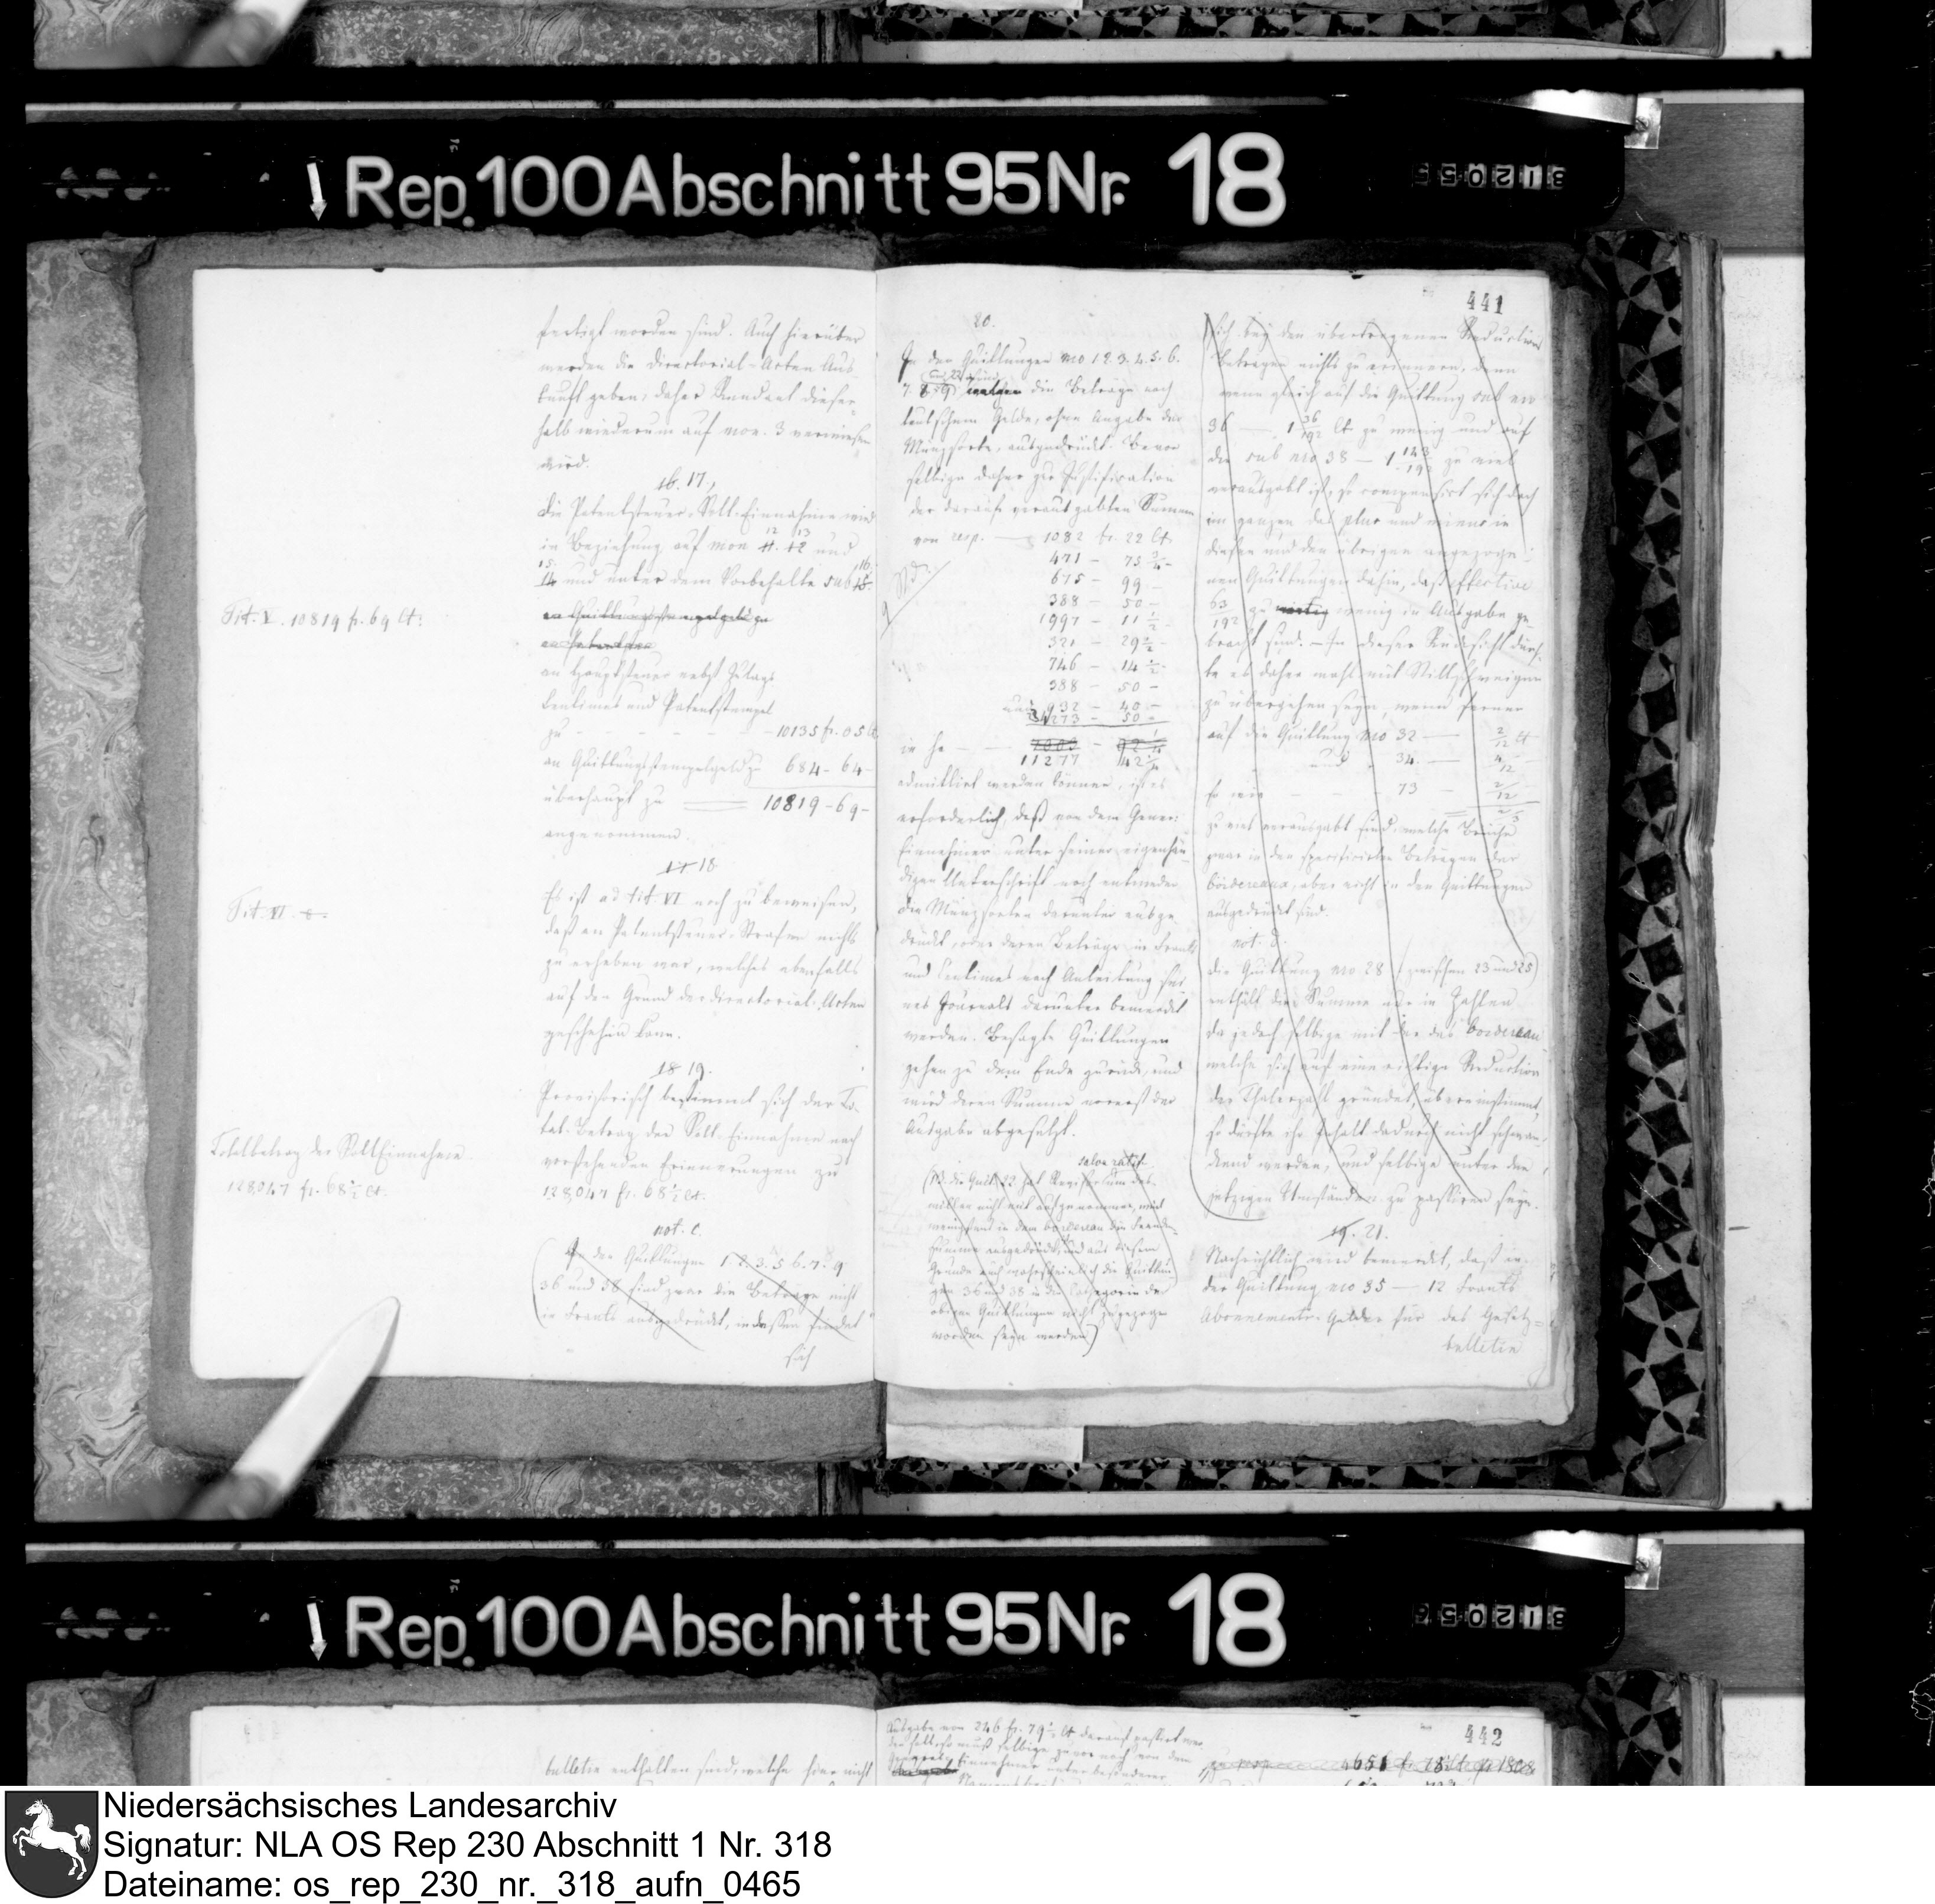 Rep. 100 Abschnitt 95 Nr. 18
312055
fertigt worden sind. Auch hierüber
werden die Directorial-Acten Aus-
kunft geben, daher Rendant dieser-
halb wiederum auf mon. 3 verwiesen
wird.
16. 17.
Die Patentsteuer-Soll-Einnahme wird
in Beziehung auf mon 11. 12 und
12 13
14 und unter dem Vorbehalte sub 15.
15. 16.
Tit. V. 10819 fr. 69 Ct:
an Hauptsteuer nebst Zulags
Centimes und Patentstempel
zu - - - - - - 10135 fr. 05 Ct
an Quittungsstempelgeld zu 684 - 64 -
überhaupt zu 10819 - 69 -
angenommen.
17 18
Tit. VI. c.
Es ist ad tit. VI noch zu beweisen,
daß an Patentsteuer-Strafen nichts
zu erheben war, welches ebenfalls
auf den Grund der Directorial-Acten
geschehen kann.
18 19.
Totalbetrag der Soll Einnahme
128,047 fr. 68 1/2 Ct.
Provisorisch bestimmt sich der To-
tal-Betrag der Soll-Einnahme nach
vorstehenden Erinnerungen zu
128,047 fr. 68 1/2 Ct.
not. C.
In den Quittungen 1. 2. 3. 5. 6. 7. 9
36 und 38 sind zwar die Beträge nicht
in Franks ausgedrückt, indessen findet
sich
20.
In den Quittungen no 1. 2. 3. 4. 5. 6.
7. 8. 9 die Beträge nach
teutschem Gelde, ohne Angabe der
Münzsorte, ausgedrückt. Bevor
selbige daher zur Justification
der darauf verausgabten Summen
von resp. 1082 fr. 22 Ct.
471 - 75
675 - 99 -
388 - 50 -
1997 - 11 1/2 -
321 - 29
746 - 14 1/2 -
388 - 50 -
932 - 40 -
273 - 50 -
11277 - 42
admittirt werden können, ist es
erforderlich, daß von dem General-
Einnehmer unter seiner eigenhän-
digen Unterschrift noch entweder
die Münzsorten darunter ausge-
drückt, oder deren Beträge in Franks
und Centimes nach Anleitung sei-
nes Journals darunter bemerkt
werden. Besagte Quittungen
gehen zu dem Ende zurück, und
wird deren Summe vorerst der
Ausgabe abgesetzt.
salva ratif.
nicht mit aufgenommen, weil
wenigstens in dem bordereau die Franks-
Summe ausgedrückt, und aus diesem
Grunde auch wahrscheinlich die Quittun-
gen 36 und 38 in die Cathegorie der
obigen Quittungen nicht gezogen
worden seyn werden)
441
sich bey den übertragenen Reductions
beträgen nichts zu erinnern, denn
wenn gleich auf die Quittung sub no
36 - 1 36/192 Ct. zu wenig und auf
die sub no 38 - 1 143/192 zu viel
verausgabt ist, so compensirt sich doch
im ganzen das plus und minus in
diesen und den übrigen angezoge-
nen Quittungen dahin, daß effective
63/192 zu wenig in Ausgabe ge-
bracht sind. - In dieser Rücksicht dürf-
te es daher wohl mit Stillschweigen
zu übergehen seyn, wenn ferner
auf die Quittung no 32 - 2/12 Ct
und 34. - 4/12
so wie - - - 73 - 2/12
2/3
zu viel verausgabt sind, welche Brüche
zwar in den specificirten Beträgen der
bordereaux, aber nicht in den Quittungen
ausgedrückt sind.
not. D.
Die Quittung no 28 (zwischen 23 und 25)
enthält die Summe nur in Zahlen
da jedoch selbige mit der des bordereau
welche sich auf eine richtige Reduction
der Thalerzahl gründet, übereinstimmt,
so dürfte ihr Gehalt dadurch nicht schwan-
kend werden, und selbige unter den
jetzigen Umständen zu passiren seyn.
19. 21.
Nachrichtlich wird bemerkt, daß in
der Quittung no 35 - 12 Franks
Abonnements-Gelder für das Gesetz-
bulletin
Rep. 100 Abschnitt 95 Nr. 18
312056
442
bulletin enthalten sind, welche hier nicht
Ausgabe von 246 fr. 79 1/2 Ct. darauf passirt wer-
den soll, so muß selbige zuvor noch von dem
General-Einnehmer unter besonderer
4651 fr. 75 Ct. p 1808
Niedersächsisches Landesarchiv
Signatur: NLA OS Rep 230 Abschnitt 1 Nr. 318
Dateiname: os_rep_230_nr._318_aufn_0465